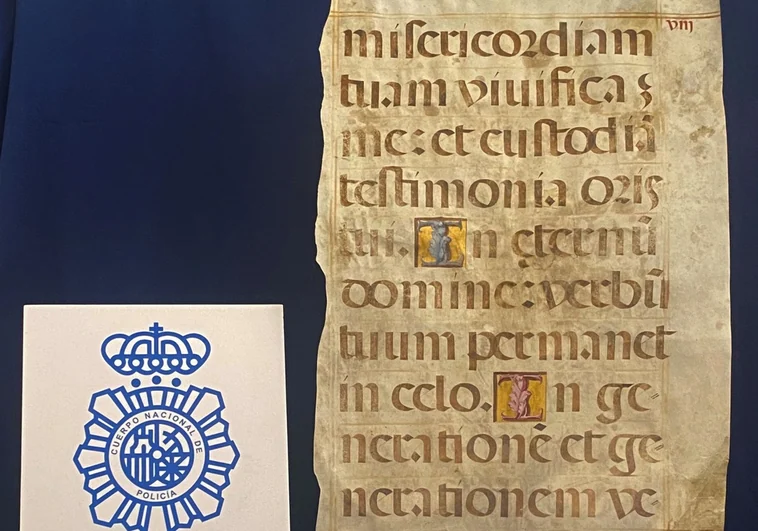 viij
misericordiam
tuam viuifica
me: et custodiā
testimonia oris
tui. In ęternū
domine: verbū
tuum permanet
in celo. In ge=
neratione et ge=
nerationem ve=
CUERPO NACIONAL DE
POLICÍA